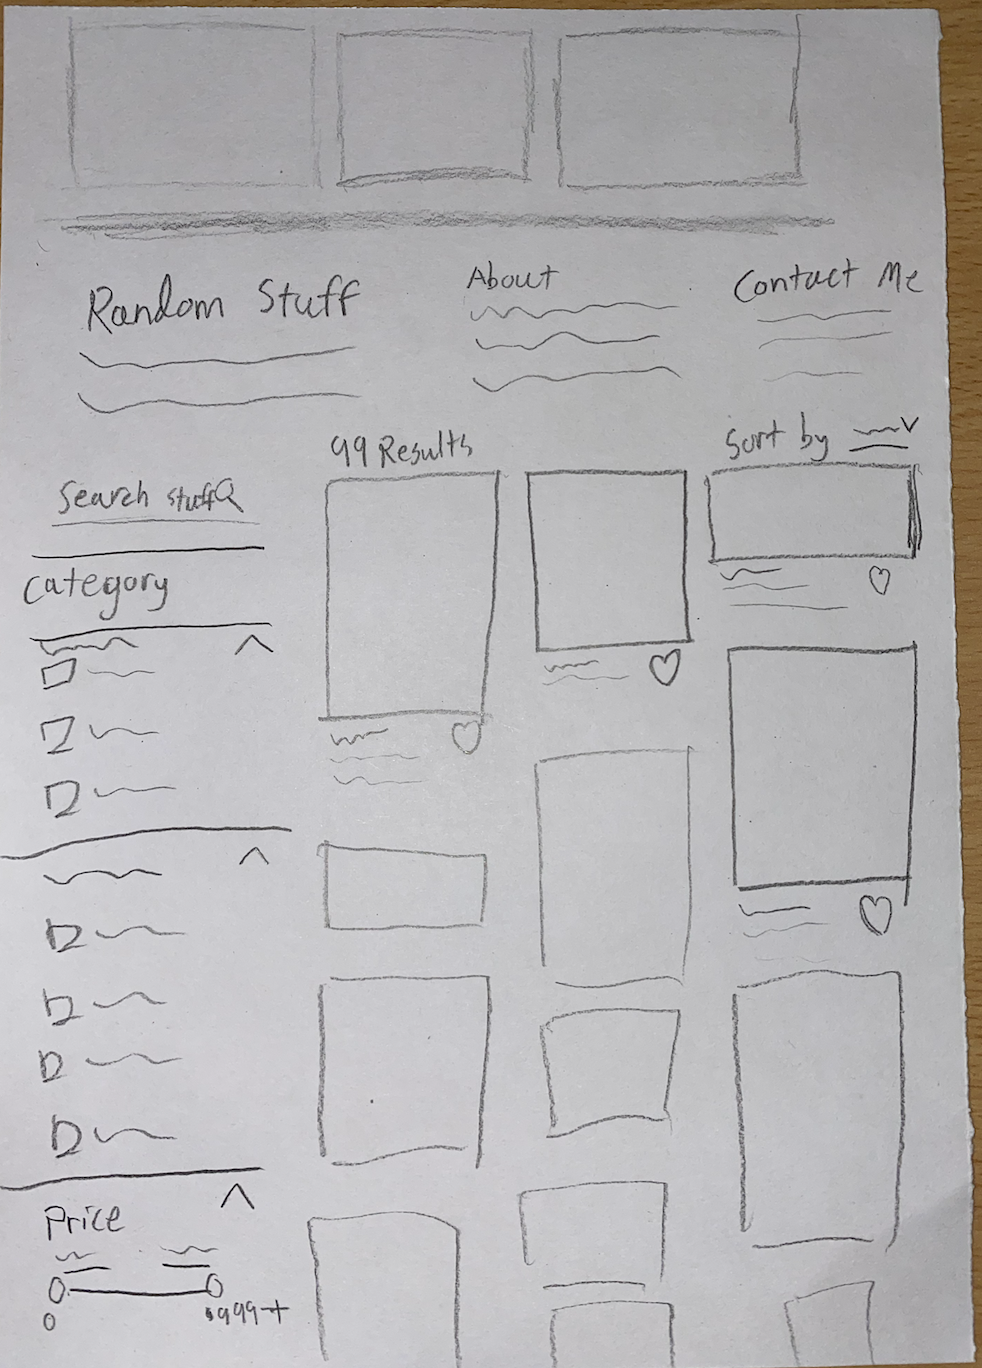 Random Stuff
About
Contact Me
99 Results
Sort by
Search stuff
Category
Price
0
$999+